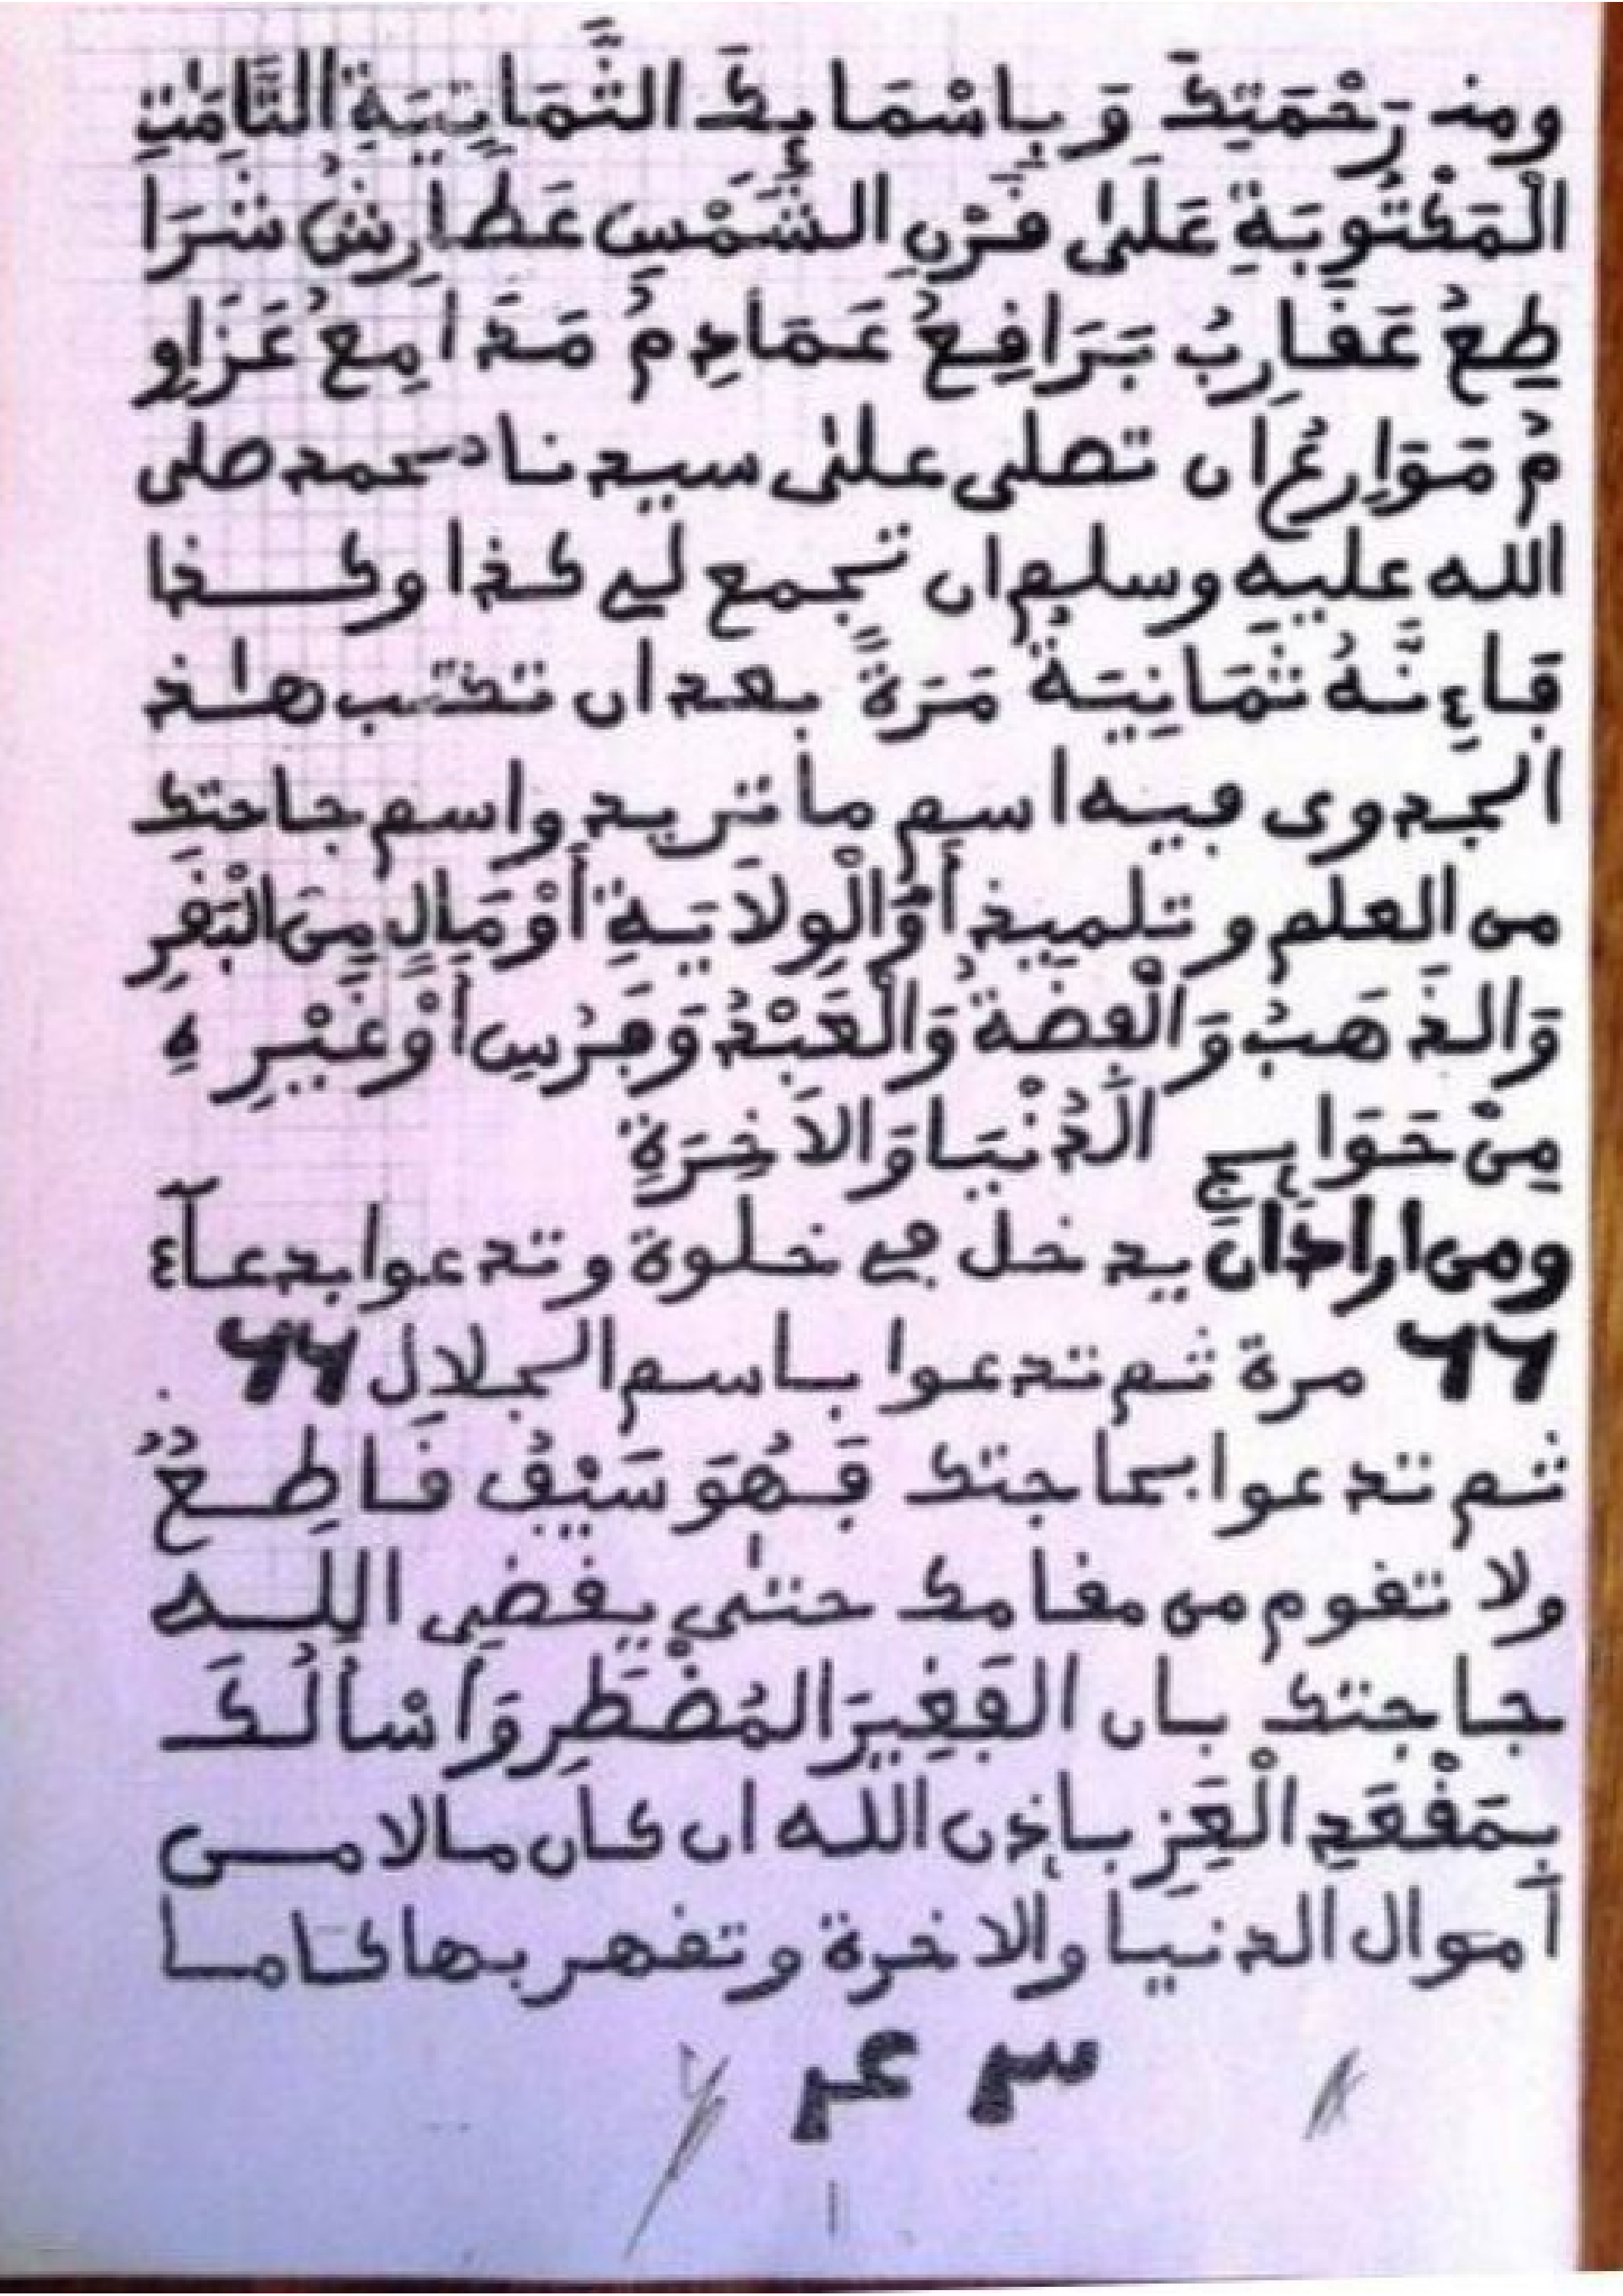 ومن رَحْمَتِكَ وَبِاسْمَايِكَ الثَّمَانِيَةِ التَّامَّتِ
الْمَكْتُوبَةِ عَلَىٰ قَرْنِ الشَّمْسِ عَطَارِشُ شَرَا
طِعُ عَفَارِبُ بَرَافِعُ عَمَادِمُ مَدَامِعُ عَزَاوِ
مُ مَوَارِعُ ان تصلى على سيدنا محمد صلى
الله عليه وسلم ان تجمع لي كذا وكذا
فَإِنَّهُ ثَمَانِيَةُ مَرَةً بعد ان تكتب هاذ
الجدوى فيه اسم ما تريد واسم حاجتك
من العلم وتلميذ أَوْ الْوِلَايَةِ أَوْ مَالٍ مِنَ الْبَقَرِ
وَالذَهَبُ وَالْفِضَةُ وَالْعَبْدُ وَفَرُسِ أَوْغَيْرِهِ
مِنْ حَوَايِج الدُنْيَا وَالاَخِرَةِ
ومن اراد ان يدخل في خلوة وتدعوا بدعآء
٦٦ مرة ثم تدعوا باسم الجلال ٦٦
ثم تدعوا بحاجتك فَهُوَ سَيْفُ قَاطِعٌ
ولا تقوم من مقامك حتى يقضى الله
حاجتك بان الفَقِيرَ المُضْطَرِ وَأَسْأَلُكَ
بِمَقْعَدِ الْعَِزِ بإذن الله ان كان مالا من
أموال الدنيا والاخرة وتقهر بها كاما
٣ ٤